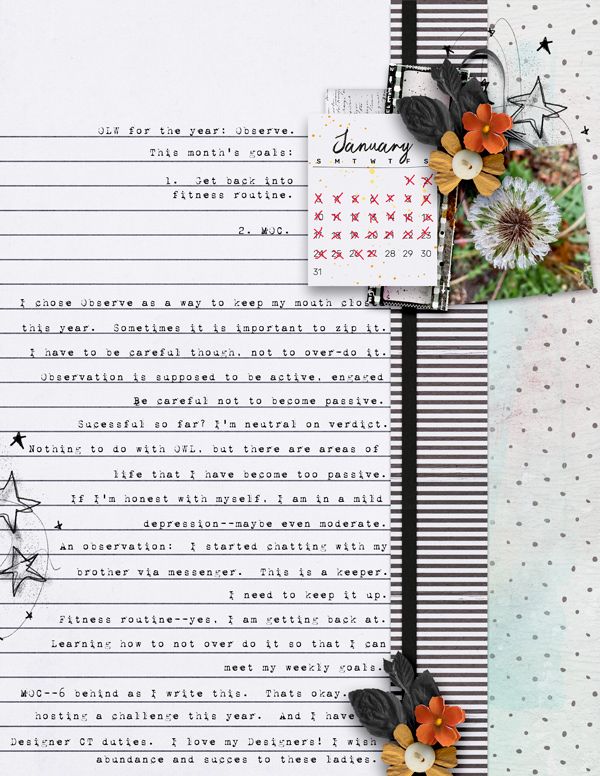 OLW for the year: Observe.
This month's goals:
1. Get back into
fitness routine.
2. MOC.
January
S M T W T F S
24 25 26 27 28 29 30
31
I chose Observe as a way to keep my mouth clos
this year. Sometimes it is important to zip it.
I have to be careful though, not to over-do it.
Observation is supposed to be active, engaged
Be careful not to become passive.
Sucessful so far? I'm neutral on verdict.
Nothing to do with OWL, but there are areas of
life that I have become too passive.
If I'm honest with myself, I am in a mild
depression--maybe even moderate.
An observation: I started chatting with my
brother via messenger. This is a keeper.
I need to keep it up.
Fitness routine--yes, I am getting back at.
Learning how to not over do it so that I can
meet my weekly goals.
MOC--6 behind as I write this. Thats okay.
hosting a challenge this year. And I have
Designer CT duties. I love my Designers! I wish
abundance and succes to these ladies.